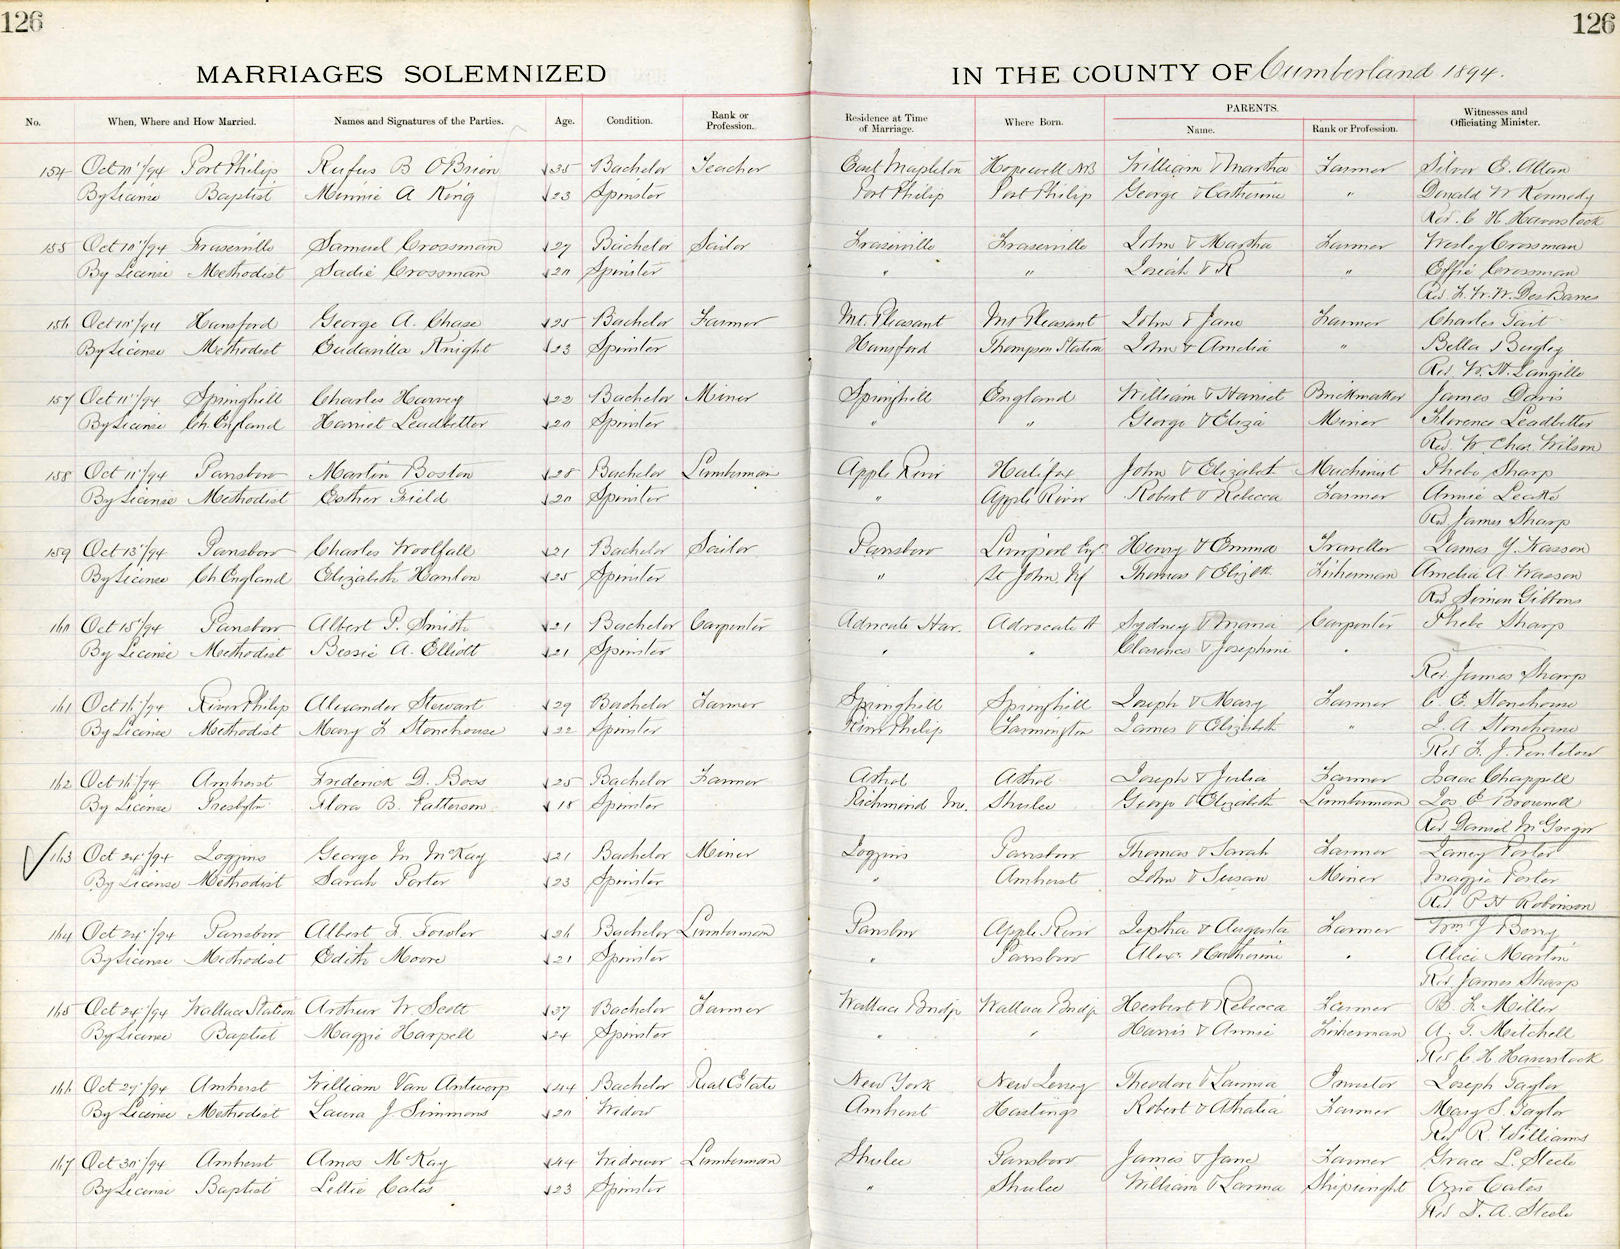 126
126
MARRIAGES SOLEMNIZED
IN THE COUNTY OF Cumberland 1894.
No. When, Where and How Married. Names and Signatures of the Parties. Age. Condition. Rank or Profession. Residence at Time of Marriage. Where Born. PARENTS. Name. Rank or Profession. Witnesses and Officiating Minister.
154 Oct 10/94 Port Philip Rufus B O'Brien 35 Bachelor Teacher East Mapleton Hopewell NB William & Martha Farmer E. Allan
By License Baptist Minnie A King 23 Spinster Port Philip Port Philip George & Catherine " Donald W Kennedy
Rev. C H Haverstock
155 Oct 10/94 Fraserville Samuel Crossman 27 Bachelor Sailor Fraserville Fraserville John & Martha Farmer Wesley Crossman
By License Methodist Sadie Crossman 20 Spinster " " Josiah & R " Effie Crossman
Rev. F. W. W. DesBarres
156 Oct 10/94 Hansford George A. Chase 25 Bachelor Farmer Mt. Pleasant Mt Pleasant John & Jane Farmer Charles Tait
By License Methodist Knight 23 Spinster Hansford Thompson Station John & Amelia " Bella
Rev. W. H. Langille
157 Oct 11/94 Springhill Charles Harvey 22 Bachelor Miner Springhill England William & Harriet Brickmaker James Davis
By License Ch. England Harriet Leadbetter 20 Spinster " " George & Eliza Miner Florence Leadbetter
Rev. W Chas. Wilson
158 Oct 11/94 Parrsboro Martin Boston 28 Bachelor Lumberman Apple River Halifax John & Elizabeth Machinist Phebe Sharp
By License Methodist Esther Field 20 Spinster " Apple River Robert & Rebecca Farmer Annie Leake
Rev James Sharp
159 Oct 13/94 Parrsboro Charles Woolfall 21 Bachelor Sailor Parrsboro Henry & Emma Traveller James Y.
By License Ch England Elizabeth Hanlon 25 Spinster " St John Nf Thomas & Elizth Fisherman Amelia A Wasson
Rev Simon Gibbons
160 Oct 15/94 Parrsboro Albert P. Smith 21 Bachelor Carpenter Advocate Har. Advocate H Sydney & Maria Carpenter Phebe Sharp
By License Methodist Bessie A. Elliott 21 Spinster " " Clarence & Josephine "
Rev. James Sharp
161 Oct 16/94 River Philip Alexander Stewart 29 Bachelor Farmer Springhill Springhill Joseph & Mary Farmer C. E. Stonehouse
By License Methodist Mary F Stonehouse 22 Spinster River Philip Farmington James & Elizabeth " J. A. Stonehouse
Rev F. J. Pentelow
162 Oct 16/94 Amherst Frederick D. Boss 25 Bachelor Farmer Athol Athol Joseph & Julia Farmer Isaac Chappell
By License Presbytn Flora B. Patterson 18 Spinster Richmond Shulee George & Elizabeth Lumberman Jos E Brownell
Rev. Daniel McGregor
163 Oct 24/94 Joggins George M McKay 21 Bachelor Miner Joggins Parrsboro Thomas & Sarah Farmer Porter
By License Methodist Sarah Porter 23 Spinster " Amherst John & Susan Miner Maggie Porter
Rev P H Robinson
164 Oct 24/94 Parrsboro Albert F. Fowler 26 Bachelor Lumberman Parrsboro Apple River Jeptha & Augusta Farmer Wm J Berry
By License Methodist Edith Moore 21 Spinster " Parrsboro Alex. & Catherine " Alice Martin
Rev. James Sharp
165 Oct 24/94 Wallace Station Arthur W Scott 37 Bachelor Farmer Wallace Bridge Wallace Bridge Herbert & Rebecca Farmer B. F. Miller
By License Baptist Maggie Harpell 24 Spinster " " Harris & Annie Fisherman A. G. Mitchell
Rev. C H. Haverstock
166 Oct 27/94 Amherst William Van Antwerp 44 Bachelor Real Estate New York New Jersey Theodore & Investor Joseph Taylor
By License Methodist Laura J Simmons 20 Widow Amherst Hastings Robert & Athalia Farmer Mary S. Taylor
Rev R. Williams
167 Oct 30/94 Amherst Amos McKay 44 Widower Lumberman Shulee Parrsboro James & Jane Farmer Grace L. Steele
By License Baptist Lettie Cates 23 Spinster " Shulee William & Lavinia Shipwright Ozzie Cates
Rev. D. A. Steele